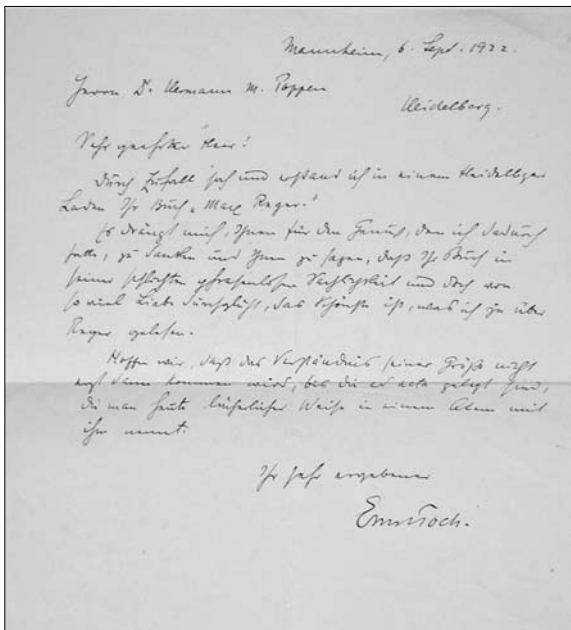 Mannheim, 6. Sept. 1922.
Herrn Dr. Hermann M. Poppen
Heidelberg.
Sehr geehrter Herr!
Durch Zufall sah und erstand ich in einem Heidelbger
Laden Ihr Buch „Max Reger."
Es drängt mich, Ihnen für den Genuß, den ich dadurch
hatte, zu danken und Ihnen zu sagen, daß Ihr Buch in
seiner schlichten phrasenlosen Sachlichkeit und doch von
so viel Liebe durchglüht, das Schönste ist, was ich je über
Reger gelesen.
Hoffen wir, daß das Verständnis seiner Größe nicht
erst dann kommen wird, bis die ad acta gelegt sind,
die man heute lächerlicher Weise in einem Atem mit
ihm nennt.
Ihr sehr ergebener
Ernst Toch.